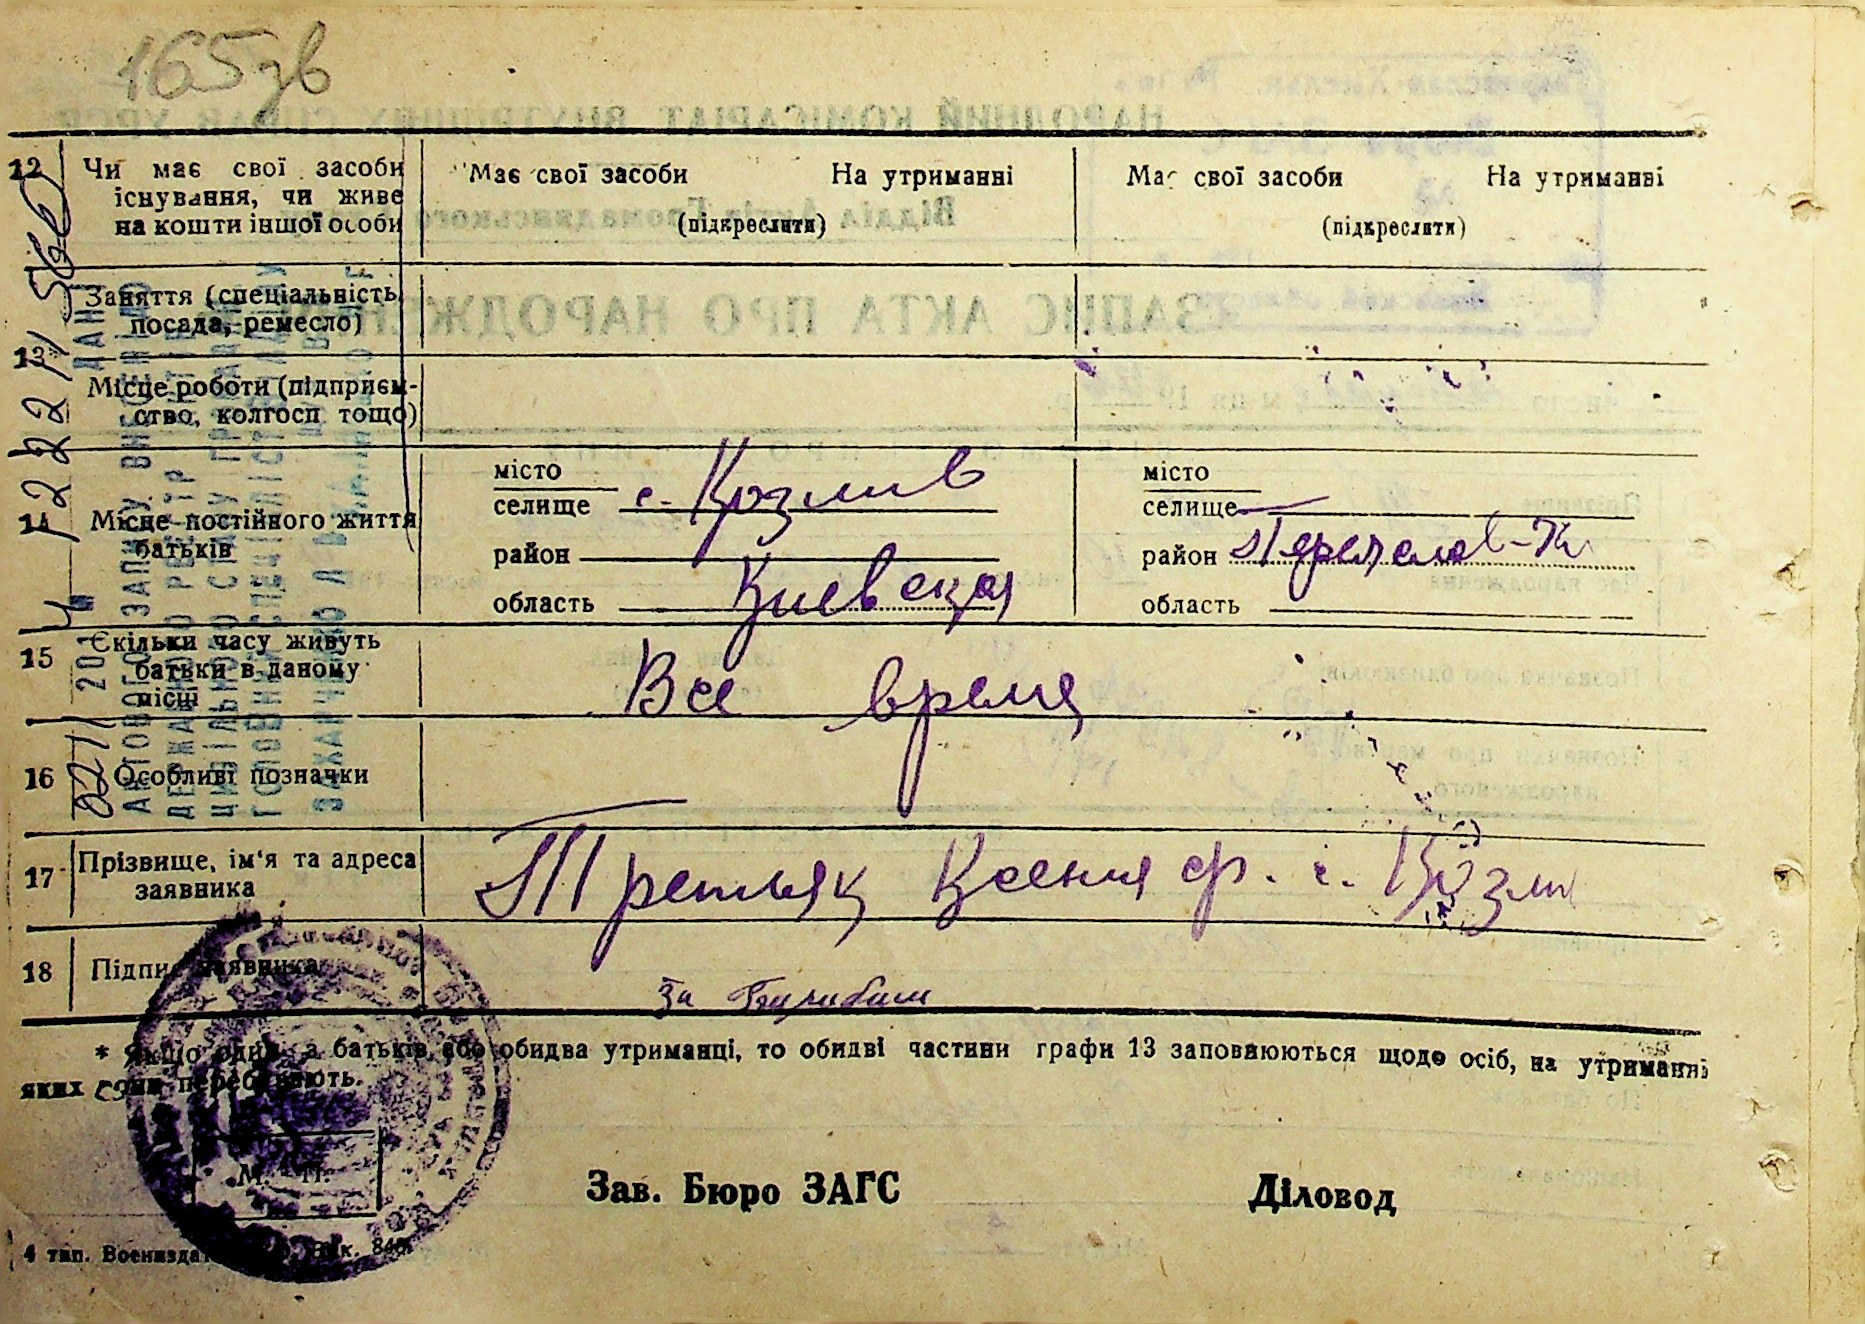 165зв
12 Чи має свої засоби існування, чи живе на кошти іншої особи
Має свої засоби На утриманні
(підкреслити)
Має свої засоби На утриманні
(підкреслити)
13
Заняття (спеціальність, посада, ремесло)
Місце роботи (підприєм-
ство, колгосп тощо)
14 Місце постійного життя
батьків
місто
селище с. Козлив
район
область Киевская
місто
селище
район Переяслав-
область
15 Скільки часу живуть
батьки в даному
місці
Все время
16 Особливі позначки
17 Прізвище, ім'я та адреса
заявника
Третьяк Ксения ф. с. Козлив
18 Підпис заявника
За
* Якщо один з батьків, або обидва утриманці, то обидві частини графи 13 заповнюються щодо осіб, на утриманні
яких вони перебувають.
М. П.
Зав. Бюро ЗАГС Діловод
4 тип. Воениздат
ДАНІ
АКТОВОГО ЗАПИСУ ВНЕСЕНІ ДО
ДЕРЖАВНОГО РЕЄСТРУ АКТІВ
ЦИВІЛЬНОГО СТАНУ ГРОМАДЯН
ГОЛОВНИЙ СПЕЦІАЛІСТ